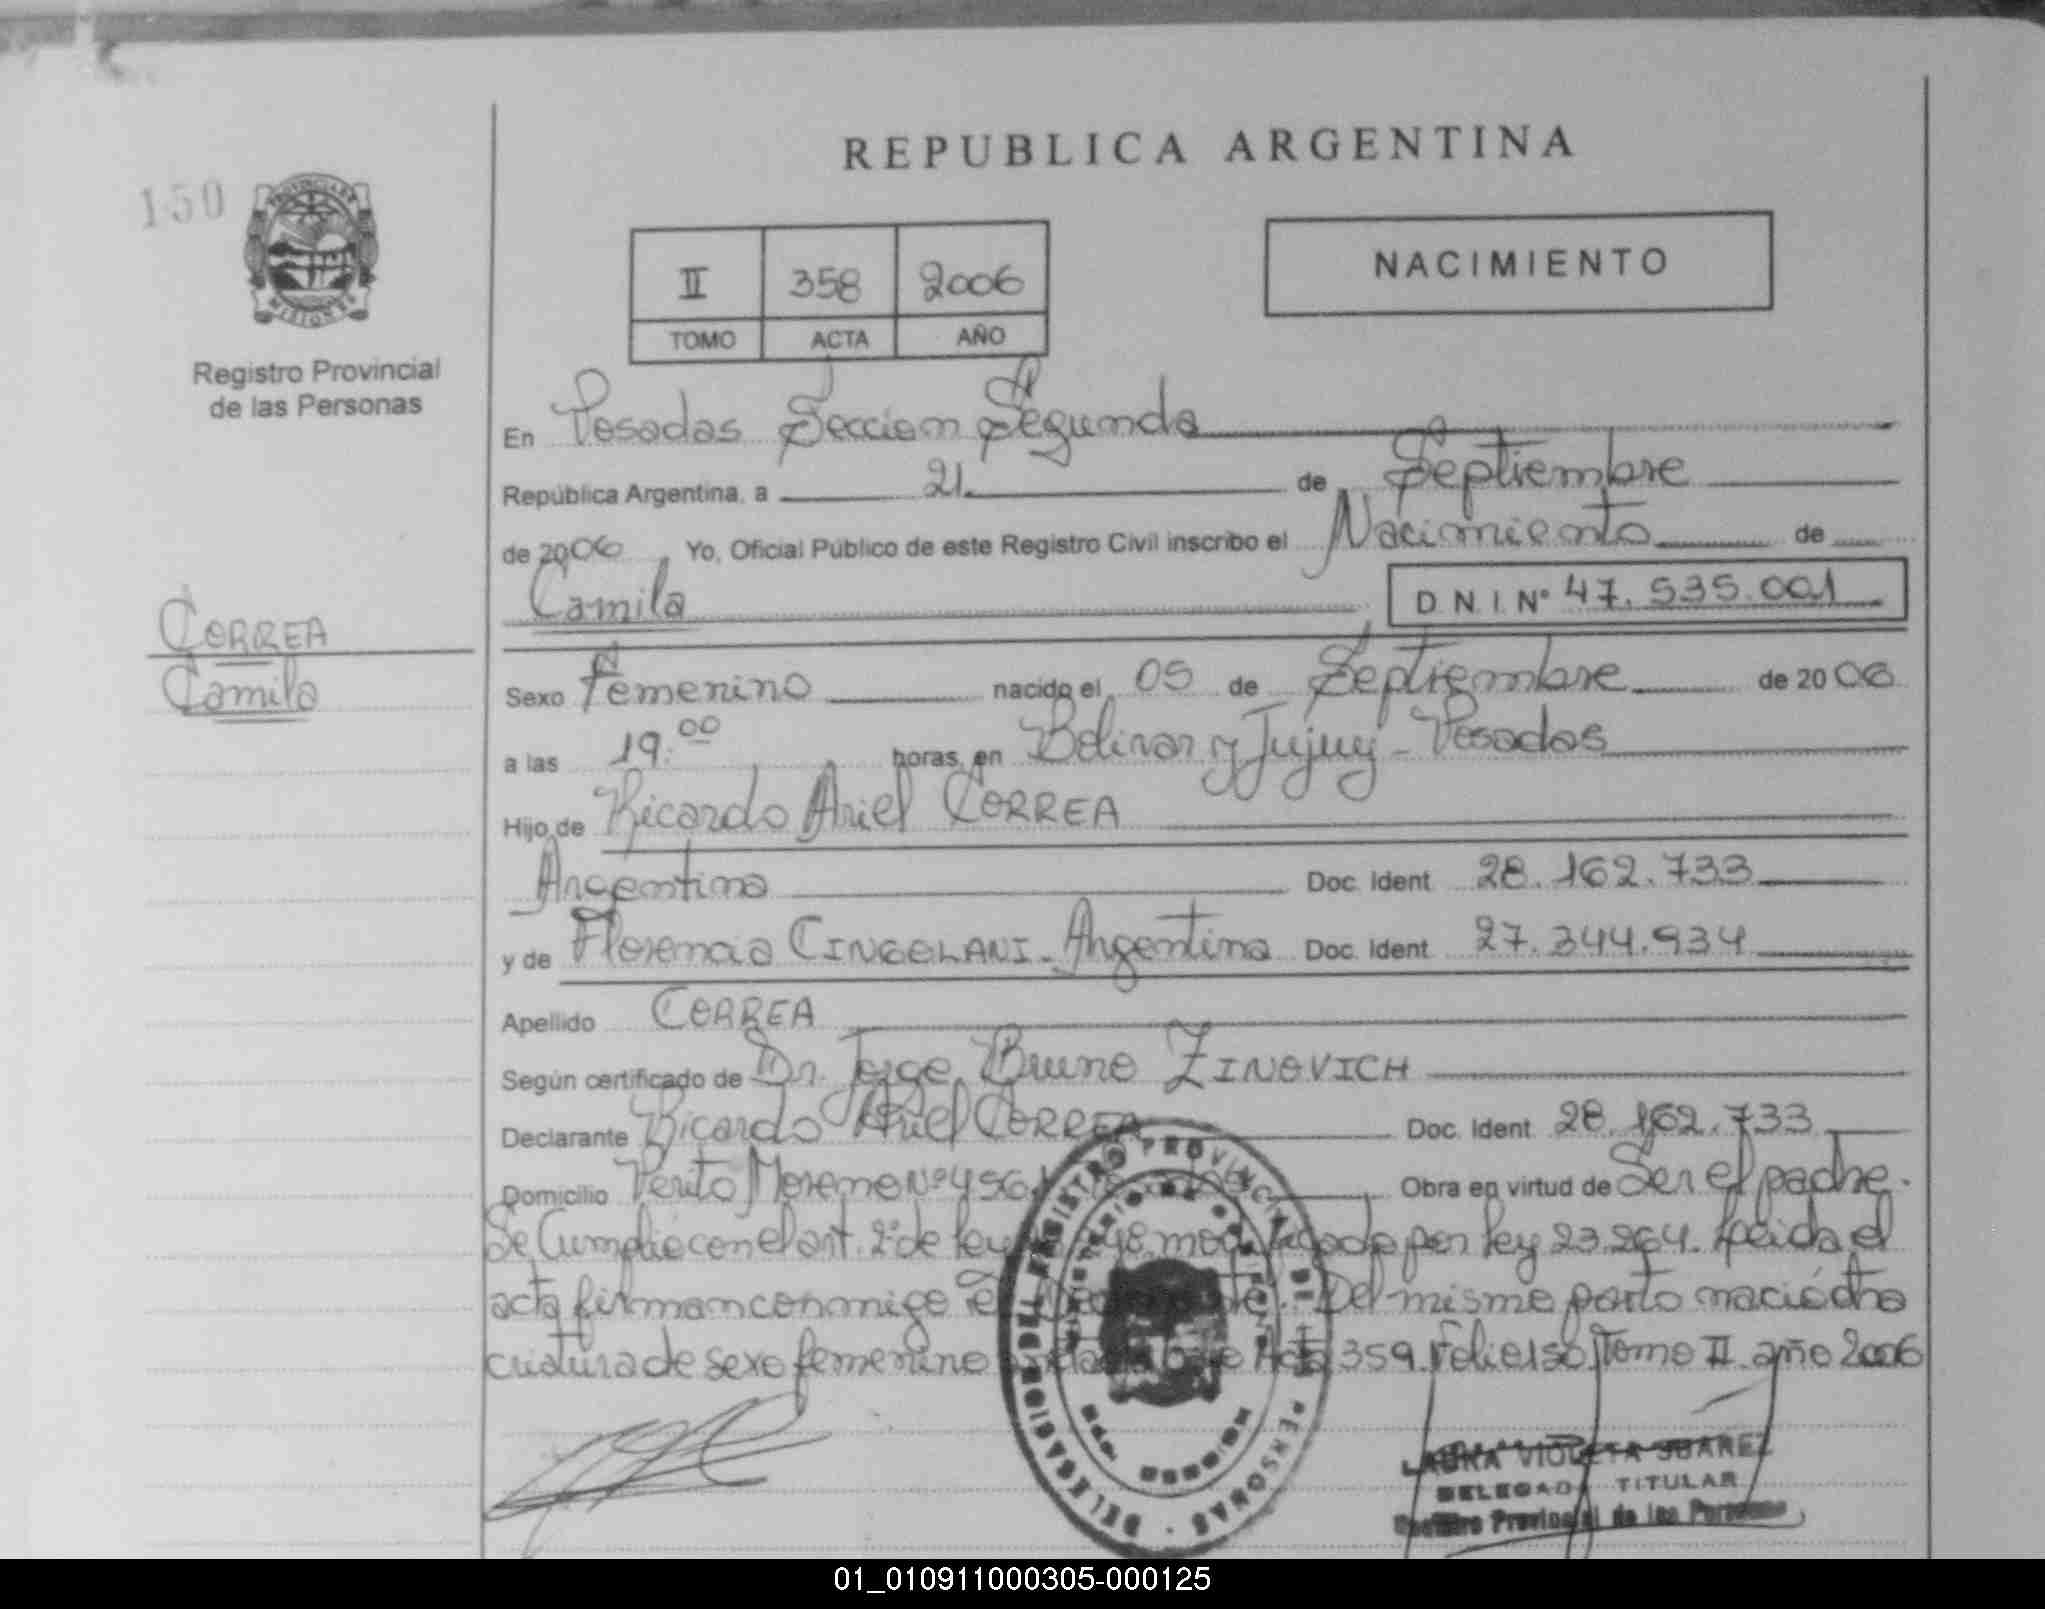 REPUBLICA ARGENTINA
150
PROVINCIA DE
MISIONES
Registro Provincial
de las Personas
II 358 2006
TOMO ACTA AÑO
NACIMIENTO
En Posadas Seccion Segunda
República Argentina, a 21 de Septiembre
de 2006 Yo, Oficial Público de este Registro Civil inscribo el Nacimiento de
Camila D.N.I. Nº 47.535.001
CORREA
Camila
Sexo Femenino nacido el 05 de Septiembre de 2006
a las 19:00 horas, en Bolivar y Jujuy - Posadas
Hijo de Ricardo Ariel CORREA
Argentino Doc. Ident 28.162.733
y de Florencia CINGOLANI - Argentina Doc. Ident 27.344.934
Apellido CORREA
Según certificado de Dr. Jorge Bruno ZINOVICH
Declarante Ricardo Ariel CORREA Doc. Ident 28.162.733
Domicilio Perito Moreno Nº 4561 Obra en virtud de Ser el padre.
Se Cumplio con el art. 2º de ley modificado por ley 23.264. Leida el
acta firman conmigo el Del mismo parto nació otra
criatura de sexo femenino Acta 359. Folio 150 Tomo II. año 2006
DELEGACION DEL REGISTRO PROVINCIAL DE LAS PERSONAS
LAURA VIOLETA SUAREZ
DELEGADA TITULAR
Registro Provincial de las Personas
01_010911000305-000125